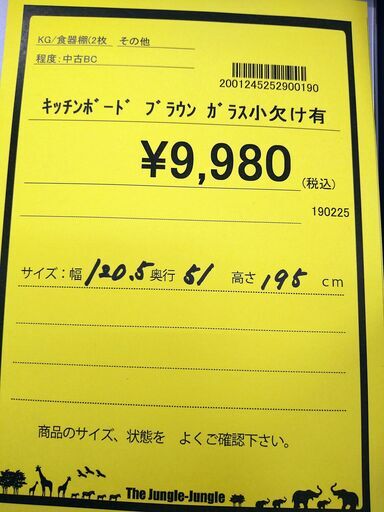 KG/食器棚(2枚 その他
程度:中古BC
2001245252900190
ｷｯﾁﾝﾎﾞｰﾄﾞ ﾌﾞﾗｳﾝ ｶﾞﾗｽ小欠け有
¥9,980(税込)
190225
サイズ:幅 120.5 奥行 51 高さ 195 cm
商品のサイズ、状態を よくご確認下さい。
The Jungle-Jungle